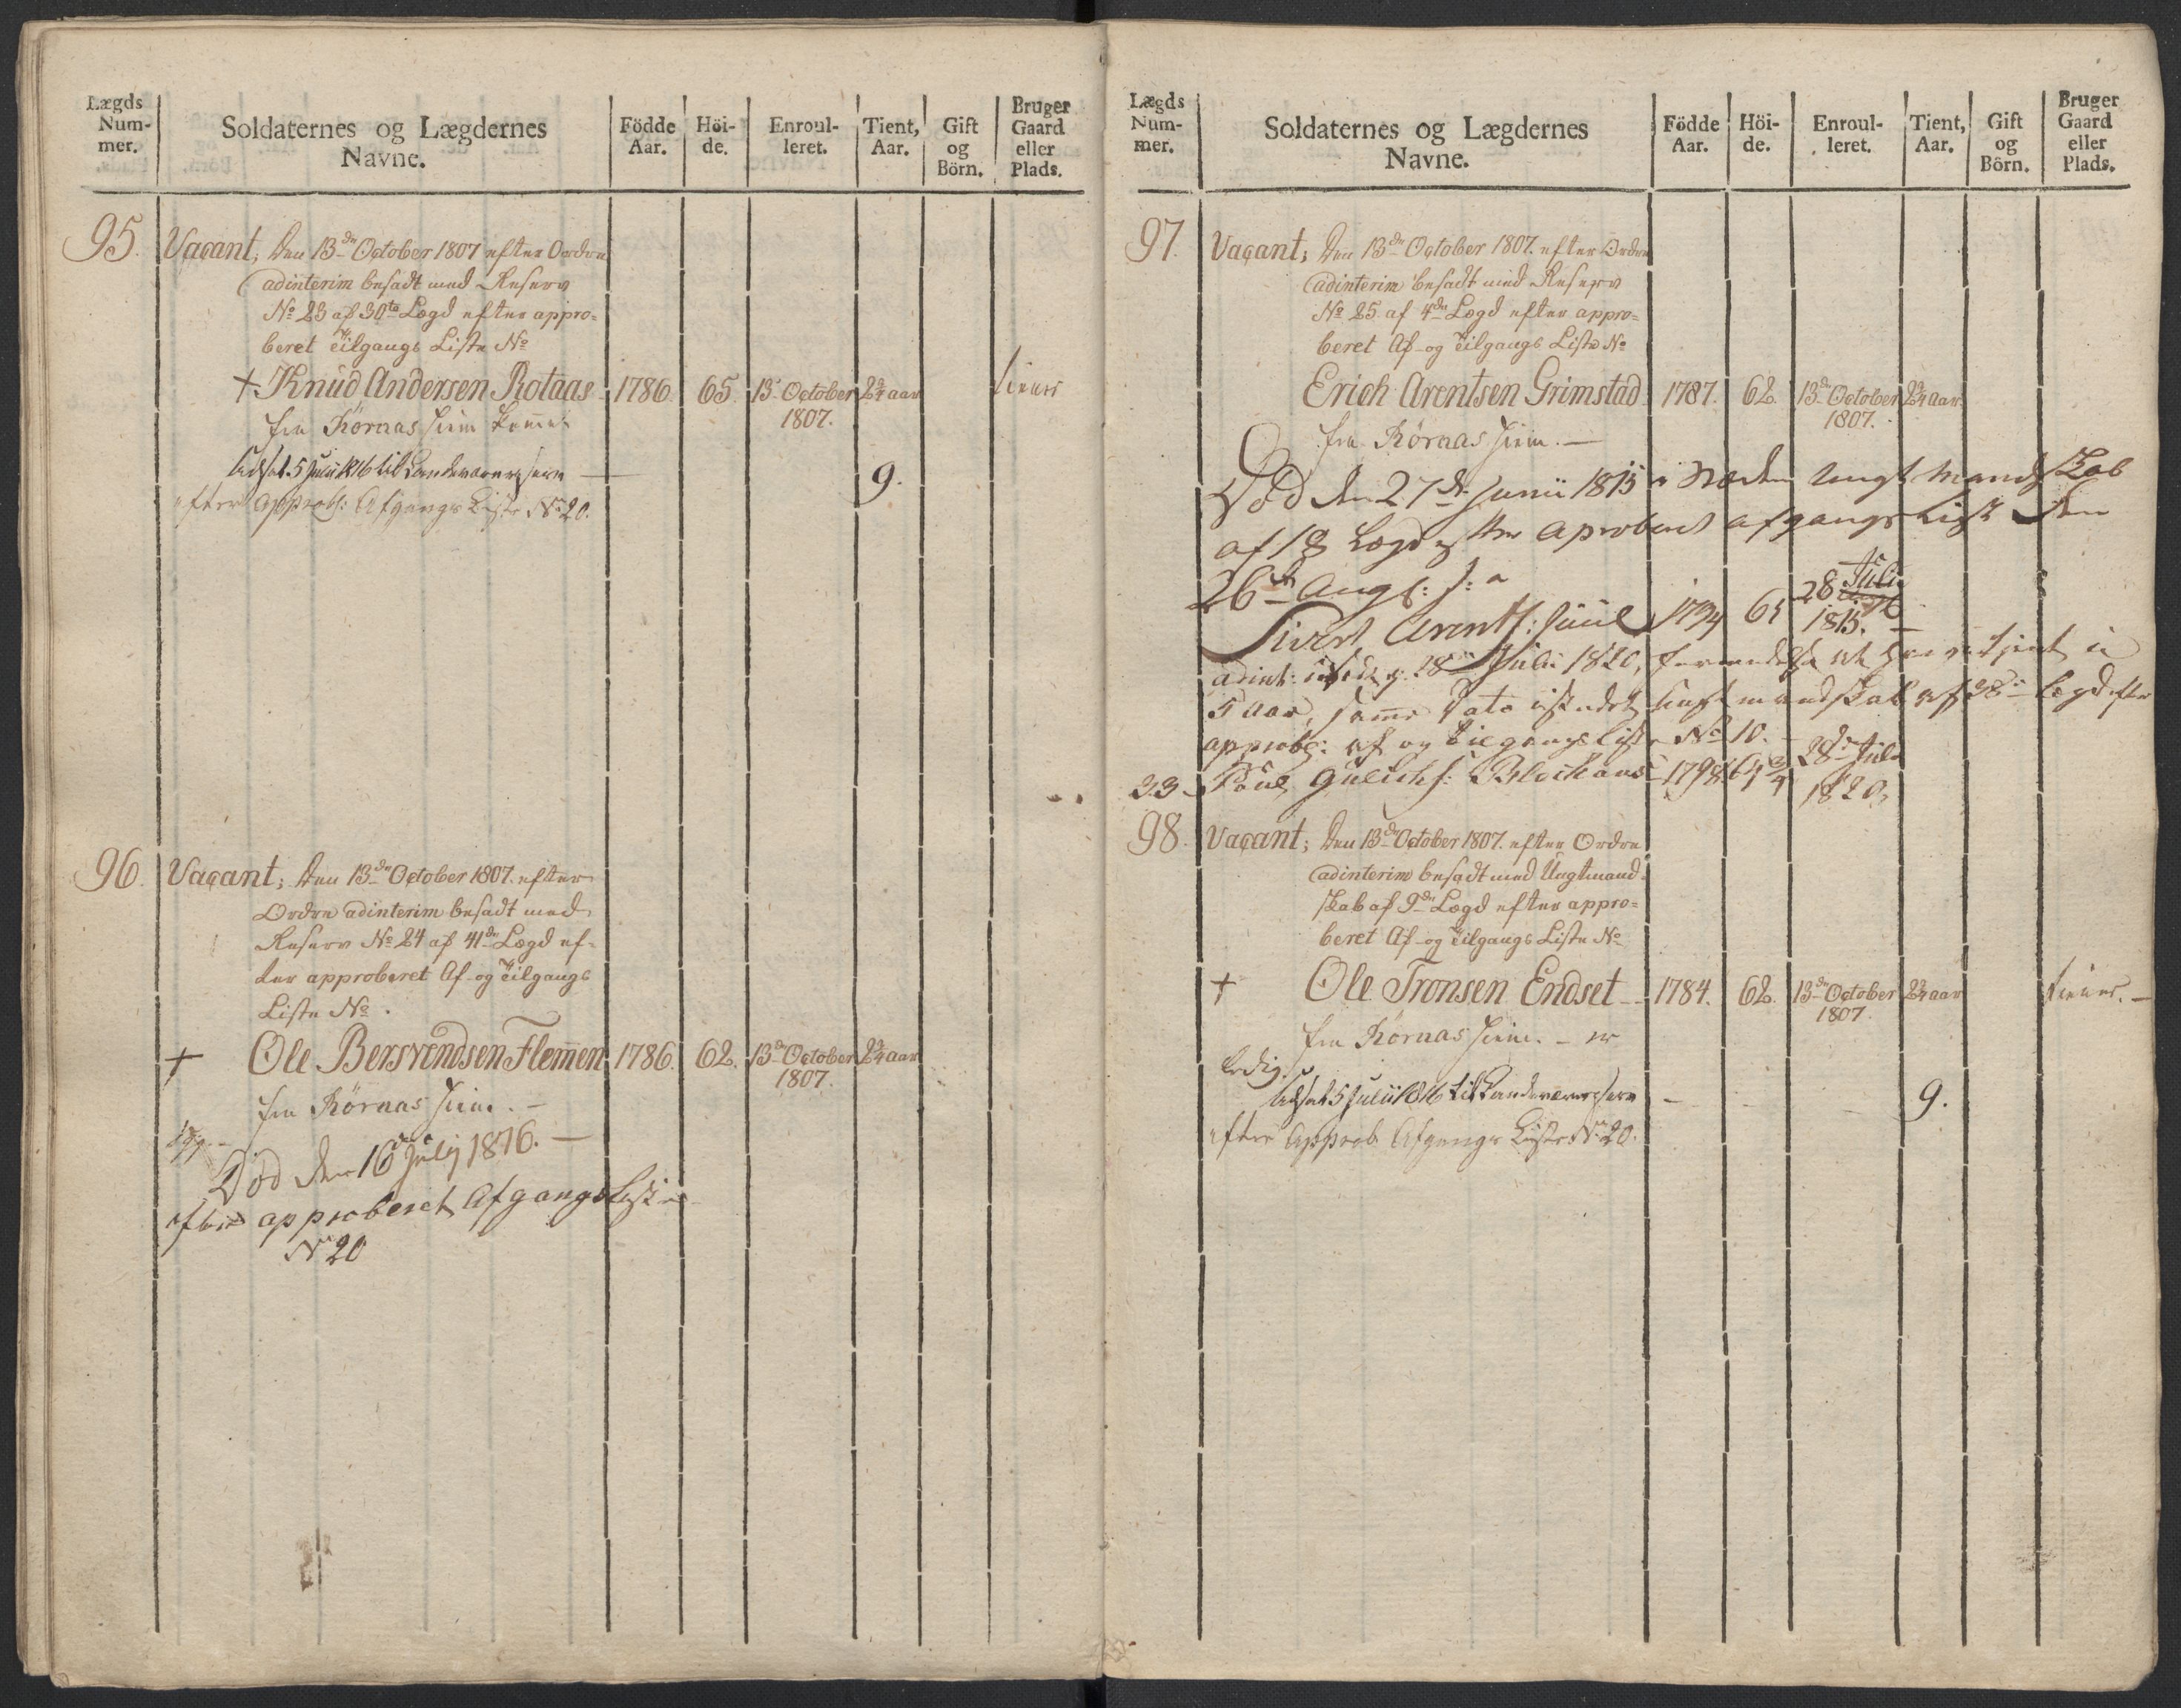 Lægds Num-mer.
Soldaternes og Lægdernes Navne.
Födde Aar.
Höi-de.
Enroul-leret.
Tient, Aar.
Gift og Börn.
Bruger Gaard eller Plads.
95. Vacant, den 13de October 1807 efter Ordre
adinterim besadt med Reserv
No 23 af 30te Lægd efter appro=
beret Tilgangs Liste No
+ Knud Andersen Rotaas 1786. 65. 13de October 2¾ aar tiener
1807.
fra Röraas
Udsat 5 Julii 1816 til Landeværnet — 9.
efter Approb: Afgangs Liste No 20.
96. Vacant; den 13de October 1807. efter
Ordre adinterim besadt med
Reserv No 24 af 41de Lægd ef-
ter approberet Af- og Tilgangs
Liste No
+ Ole Bersvendsen Flemen 1786. 62. 13de October 2¾ aar
1807.
fra Röraas
Död den 16de Julij 1816. —
efter approberet Afgangs Liste
No 20
Lægds Num-mer.
Soldaternes og Lægdernes Navne.
Födde Aar.
Höi-de.
Enroul-leret.
Tient, Aar.
Gift og Börn.
Bruger Gaard eller Plads.
97. Vacant; den 13de October 1807. efter Ordre
adinterim besadt med Reserv
No 25 af 4de Lægd efter appro=
beret Af- og Tilgangs Liste No
Erich Arentsen Grimstad 1787. 62. 13de October 2¾ aar
1807.
fra Röraas
Död den 27de Junii 1815 Ungt Mandskab
af 18 Lægd efter aproberet afgangs Liste den
26de Aug:
Sivert Arents: Juul 1794 65 28 Juli
1815.
adint: 28de Julii 1820,
5 Aar, samme Dato Ungt mandskab af 38te Lægd efter
approb: af og tilgangs Liste No 10.
23 Poul 1798 64¾ 28de Juli
1820,
98. Vacant; den 13de October 1807. efter Ordre
adinterim besadt med Ungtmand-
skab af 9de Lægd efter appro=
beret Af- og Tilgangs Liste No
+ Ole Tronsen Endset 1784. 62. 13de October 2¾ aar tiener. —
1807.
fra Röraas — er
ledig.
Udsat 5 Julii 1816 til Landeværnet — 9.
efter Approb Afgangs Liste No 20.